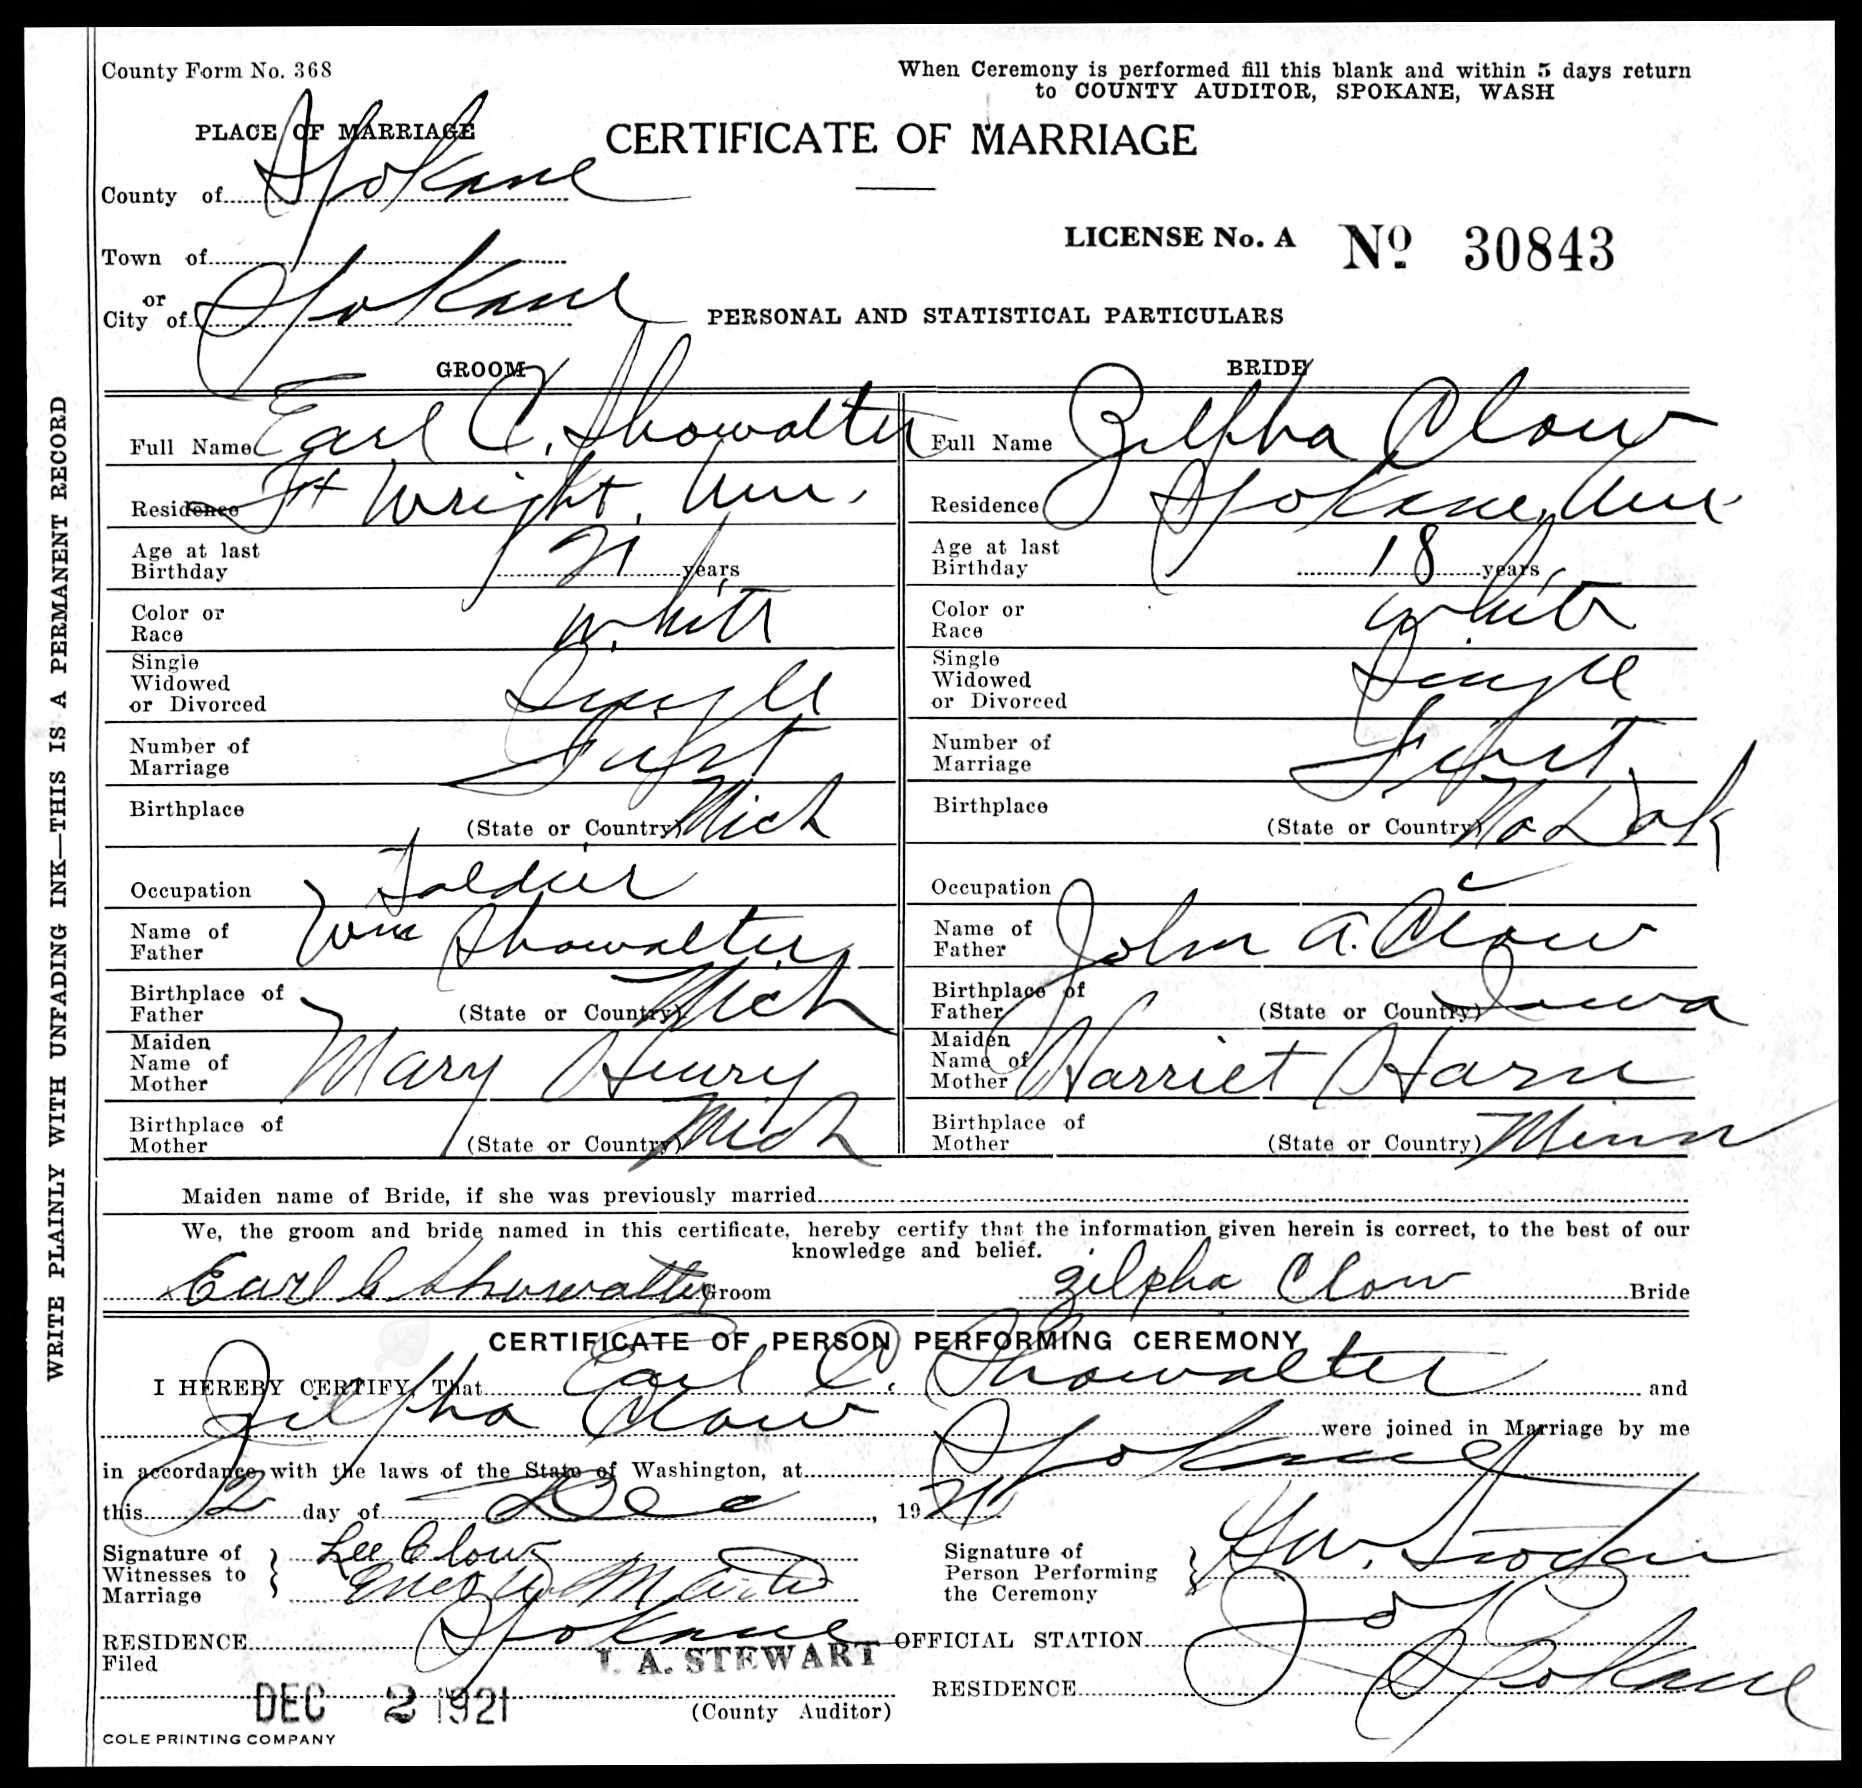 County Form No. 368
When Ceremony is performed fill this blank and within 5 days return
to COUNTY AUDITOR, SPOKANE, WASH
PLACE OF MARRIAGE
CERTIFICATE OF MARRIAGE
County of Spokane
LICENSE No. A No. 30843
Town of
or
City of Spokane
PERSONAL AND STATISTICAL PARTICULARS
GROOM
BRIDE
Full Name Earl C. Showalter
Full Name Zilpha Clow
Residence Ft Wright, Wn.
Residence Spokane, Wn.
Age at last Birthday 21 years
Age at last Birthday 18 years
Color or Race White
Color or Race White
Single Widowed or Divorced Single
Single Widowed or Divorced Single
Number of Marriage First
Number of Marriage First
Birthplace (State or Country) Mich
Birthplace (State or Country) No Dak
Occupation Soldier
Occupation
Name of Father Wm Showalter
Name of Father John A. Clow
Birthplace of Father (State or Country) Mich
Birthplace of Father (State or Country) Iowa
Maiden Name of Mother Mary Henry
Maiden Name of Mother Harriet Harn
Birthplace of Mother (State or Country) Mich
Birthplace of Mother (State or Country) Minn
Maiden name of Bride, if she was previously married
We, the groom and bride named in this certificate, hereby certify that the information given herein is correct, to the best of our
knowledge and belief.
Earl C Showalter Groom
Zilpha Clow Bride
CERTIFICATE OF PERSON PERFORMING CEREMONY
I HEREBY CERTIFY, That Earl C. Showalter and
Zilpha Clow were joined in Marriage by me
in accordance with the laws of the State of Washington, at Spokane
this 2 day of Dec, 1921
Signature of Witnesses to Marriage
Lee Clow
Signature of Person Performing the Ceremony
RESIDENCE Spokane
OFFICIAL STATION
Filed
A. STEWART
RESIDENCE Spokane
DEC 2 1921
(County Auditor)
COLE PRINTING COMPANY
WRITE PLAINLY WITH UNFADING INK—THIS IS A PERMANENT RECORD